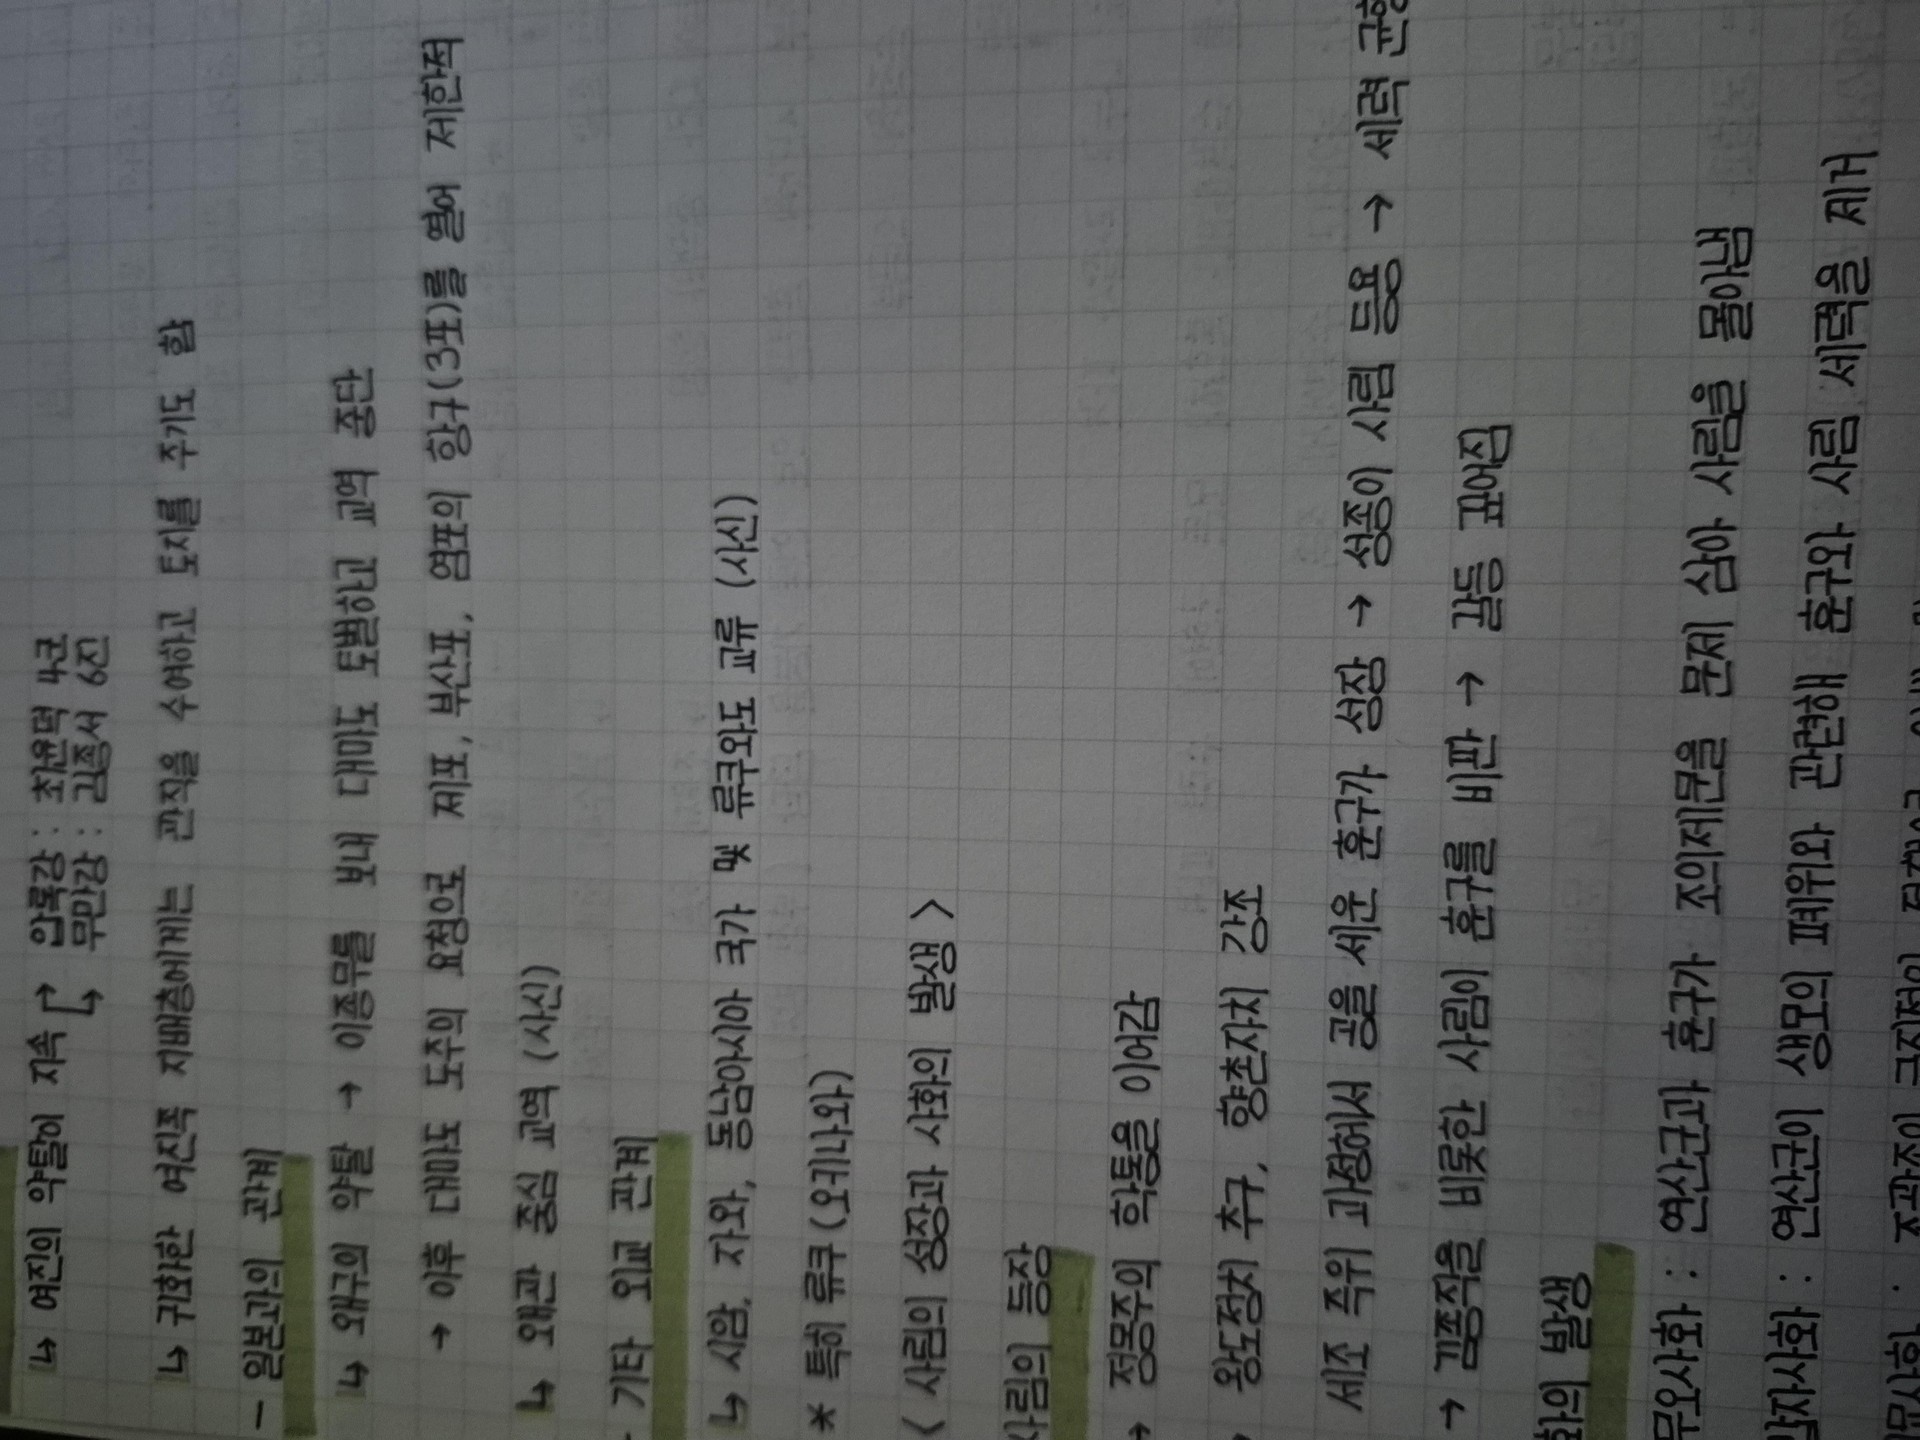 ↳ 여진의 약탈이 지속 ┌→ 압록강 : 최윤덕 4군
↳ 무만강 : 김종서 6진
↳ 귀화한 여진족 지배층에게는 관직을 수여하고 토지를 주기도 함
- 일본과의 관계
↳ 왜구의 약탈 → 이종무를 보내 대마도 토벌하고 교역 중단
→ 이후 대마도 도주의 요청으로 제포, 부산포, 염포의 항구(3포)를 열어 제한적
↳ 왜관 중심 교역 (사신)
- 기타 외교 관계
↳ 시암, 자와, 동남아시아 국가 및 류큐와도 교류 (사신)
* 특히 류큐 (오키나와)
< 사림의 성장과 사화의 발생 >
사림의 등장
→ 정몽주의 학통을 이어감
→ 왕도정치 추구, 향촌자치 강조
세조 즉위 과정에서 공을 세운 훈구가 성장 → 성종이 사림 등용 → 세력 균형
→ 김종직을 비롯한 사림이 훈구를 비판 → 갈등 깊어짐
화의 발생
무오사화 : 연산군과 훈구가 조의제문을 문제 삼아 사림을 몰아냄
갑자사화 : 연산군이 생모의 폐위와 관련해 훈구와 사림 세력을 제거